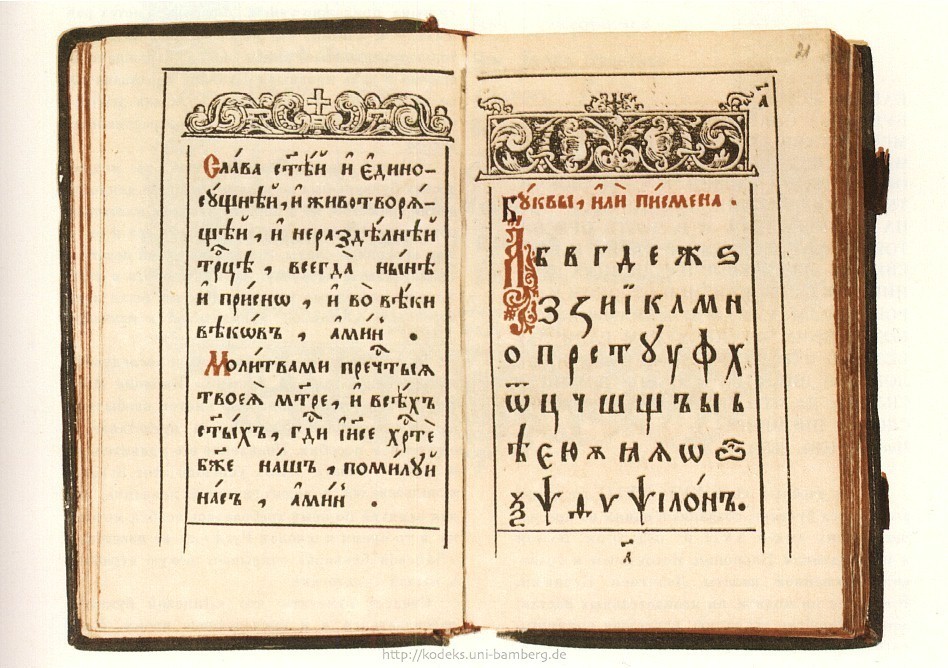 Сла́ва ст҃ѣ́й и҆ є҆дино-
су́щнѣй, и҆ животворѧ́-
щѣй, и҆ нераздѣ́лнѣй
трⷪ҇цѣ, всегда̀ ны́нѣ
и҆ при́снѡ, и҆ во̀ вѣ́ки
вѣкѡ́въ, а҆ми́нь.
Моли́твами пречⷭ҇тыѧ
твоеѧ̀ мт҃ре, и҆ всѣ́хъ
ст҃ы́хъ, гдⷭ҇и і҆и҃се хрⷭ҇тѐ
бж҃е на́шъ, поми́лꙋй
на́съ, а҆ми́нь.
21
а҃
Бꙋ́квы, и҆лѝ пи́смена.
А б в г д е ж ѕ
з ꙁ и ї к л м н
о п р с т ꙋ у ф х
ѿ ц ч ш щ ъ ы ь
ѣ є ю ѫ ꙗ ѧ ѡ ѽ
ѯ ѱ ѳ ѵ ѱілѡ́нъ.
а҃
http://kodeks.uni-bamberg.de